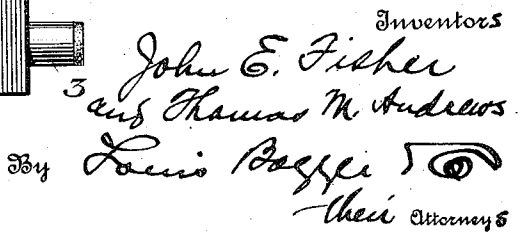 Inventors
John E. Fisher
3
and Thomas M. Andrews
By Louis Bagger & Co
their Attorneys